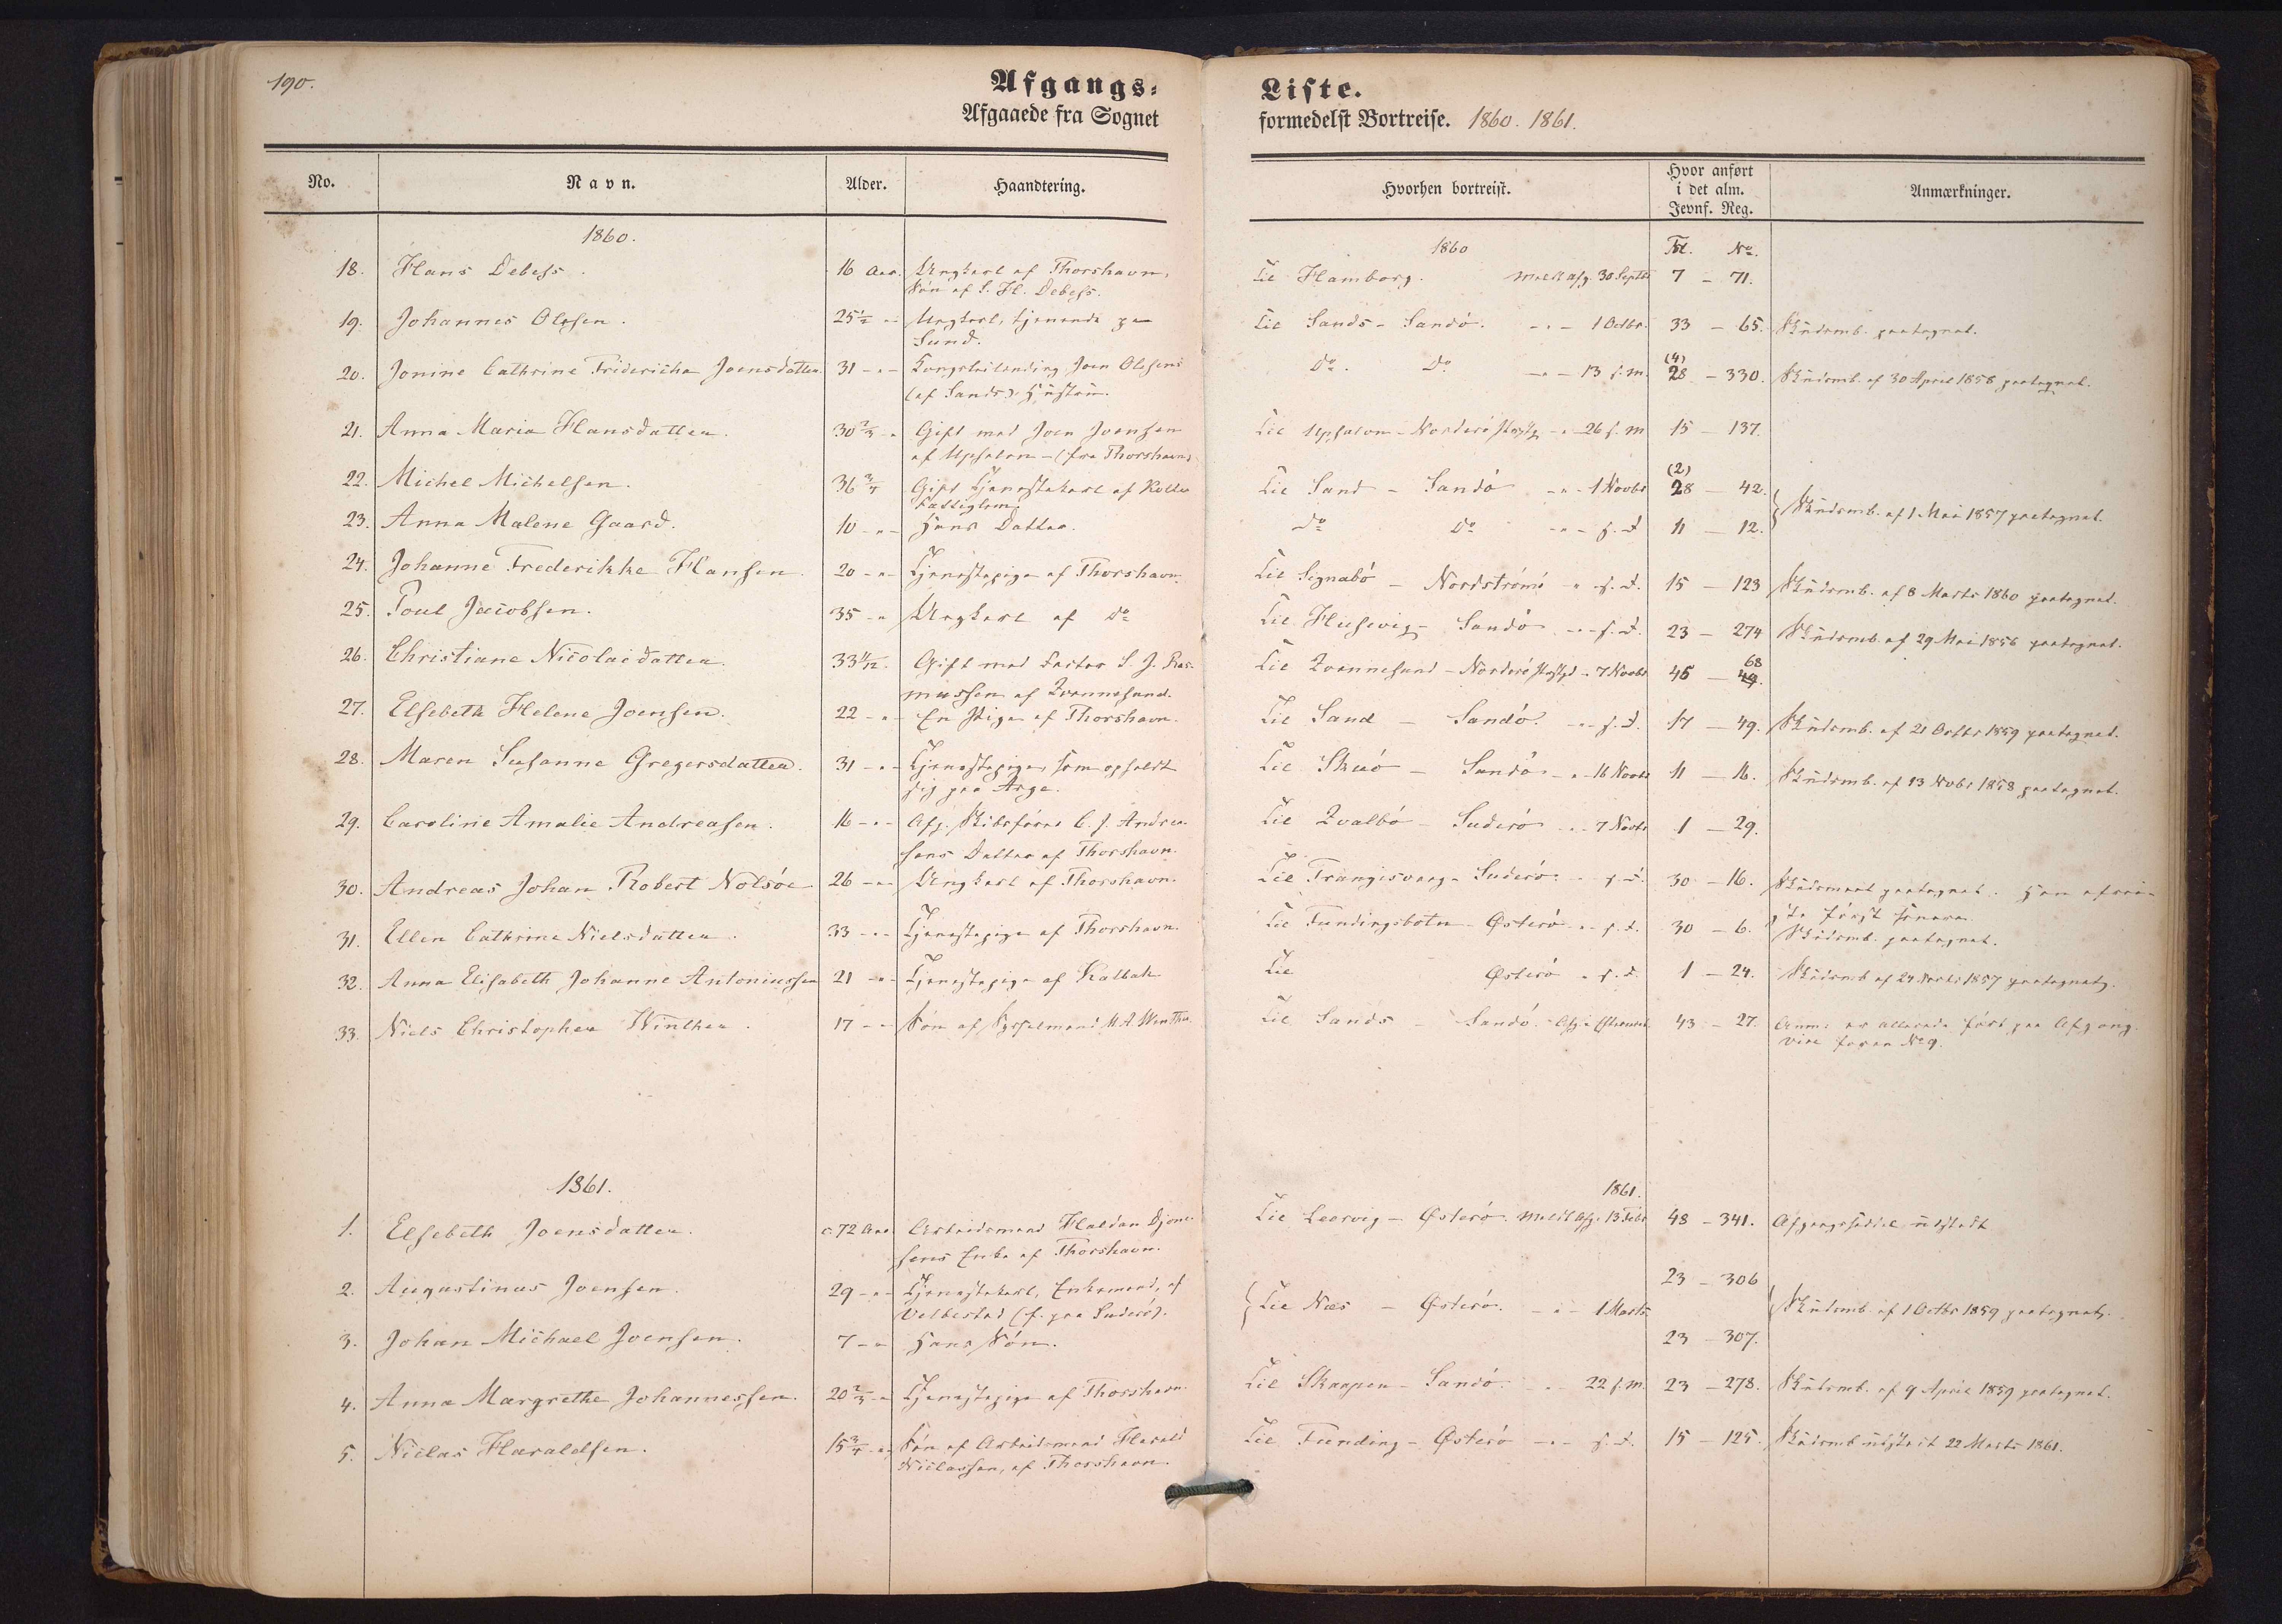 190.
Afgangs=
Afgaaede fra Sognet
No.
Navn.
Alder.
Haandtering.
1860.
18. Hans Debess. 16 Aar. Ungkarl af Thorshavn,
Søn af S. H. Debess.
19. Johannes Olesen. 25 1/2 -"- Ungkarl, tjenende paa
Sund.
20. Jonine Cathrine Fridericha Joensdatter 31 -"- Kongsbilending Joen Olesens
(af Sands) Hustru.
21. Anna Maria Hansdatter. 30 2/3 -"- Gift med Joen Joensen
af Uphalom - (fra Thorshavn)
22. Michel Michelsen. 36 3/4 Gift Tjenestekarl af
Fattiglem.
23. Anna Malene Gaard. 10 -"- Hans Datter.
24. Johanne Frederikke Hansen 20 -"- Tjenestepige af Thorshavn.
25. Poul Jacobsen. 35 -"- Ungkarl af do
26. Christiane Nicolaidatter. 33 11/12 Gift med Factor S. J. Ras-
mussen af Qvannesund.
27. Elsebeth Helene Joensen. 22 -"- En Pige af Thorshavn.
28. Maren Susanne Gregersdatter. 31 -"- Tjenestepige, som opholdt
sig paa Arge.
29. Caroline Amalie Andreasen. 16 -"- Afg. Skibsfører C. J. Andrea-
sens Datter af Thorshavn.
30. Andreas Johan Robert Nolsöe 26 -"- Ungkarl af Thorshavn.
31. Ellen Cathrine Nielsdatter. 33 -"- Tjenestepige af Thorshavn.
32. Anna Elisabeth Johanne Antoniussen 21 -"- Tjenestepige af Kalbak
33. Niels Christopher Winther. 17 -"- Søn af Sysselmand M. A. Winther.
1861.
1. Elsebeth Joensdatter. c. 72 Aar Arbeidsmand Haldan Djone-
sens Enke af Thorshavn.
2. Augustinus Joensen. 29 -"- Tjenestekarl, Enkemand, af
Velbestad (f. paa Suderö).
3. Johan Michael Joensen. 7 -"- Hans Søn.
4. Anna Margrethe Johannessen. 20 2/3 -"- Tjenestepige af Thorshavn.
5. Niclas Haraldsen. 15 3/4 -"- Søn af Arbeidsmand Harald
Niclassen, af Thorshavn.
Liste.
formedelst Bortreise. 1860. 1861.
Hvorhen bortreist.
Hvor anført
i det alm.
Jevnf. Reg.
Anmærkninger.
1860 Fol. No.
Til Hamborg. Meldt afg. 30 Septbr 7 - 71.
Til Sands - Sandö. -"- 1 Octbr. 33 - 65. Skudsmb. paategnet.
do. do -"- 13 s. m. (4) 28 - 330. Skudsmb. af 30 April 1858 paategnet.
Til Uphalom - Norderö Præstg. -"- 26 s. m 15 - 137.
Til Sand - Sandö -"- 1 Novbr (2) 28 - 42.
do do -"- s. D. 11 - 12. } Skudsmb. af 1 Mai 1857 paategnet.
Til Signabö - Nordströmö -"- s. D. 15 - 123 Skudsmb. af 8 Marts 1860 paategnet.
Til Husevig - Sandö -"- s. D. 23 - 274 Skudsmb. af 29 Mai 1856 paategnet.
Til Qvannesund - Norderö Præstg. - 7 Novbr 46 - 49. 68
Til Sand - Sandö. -"- s. D. 17 - 49. Skudsmb. af 21 Octbr 1859 paategnet.
Til Skuö - Sandö -"- 16 Novbr 11 - 16. Skudsmb. af 13 Novbr 1858 paategnet.
Til Qvalbö - Suderö -"- 7 Novbr 1 - 29.
Til Trangisvaag - Suderö. -"- s. D. 30 - 16. Skudsmaal paategnet. Han afrei-
ste først senere.
Til Fundingsbotn - Østerö -"- s. D. 30 - 6. Skudsmb. paategnet.
Til Østerö -"- s. D. 1 - 24. Skudsmb af 24 Marts 1857 paategnet.
Til Sands - Sandö. 43 - 27. Anm: er allerede ført paa Afgang.
vide foran No 9.
1861.
Til Leervig - Østerö. Meldt afg. 13 Febr 48 - 341. Afgangsseddel udstedt
23 - 306
{ Til Næs - Østerö. -"- 1 Marts } Skudsmb. af 1 Octbr 1859 paategnet.
23 - 307.
Til Skaapen - Sandö. -"- 22 s. m. 23 - 278. Skudsmb. af 9 April 1859 paategnet.
Til Funding - Østerö -"- s. D. 15 - 125. Skudsmb udstedt 22 Marts 1861.